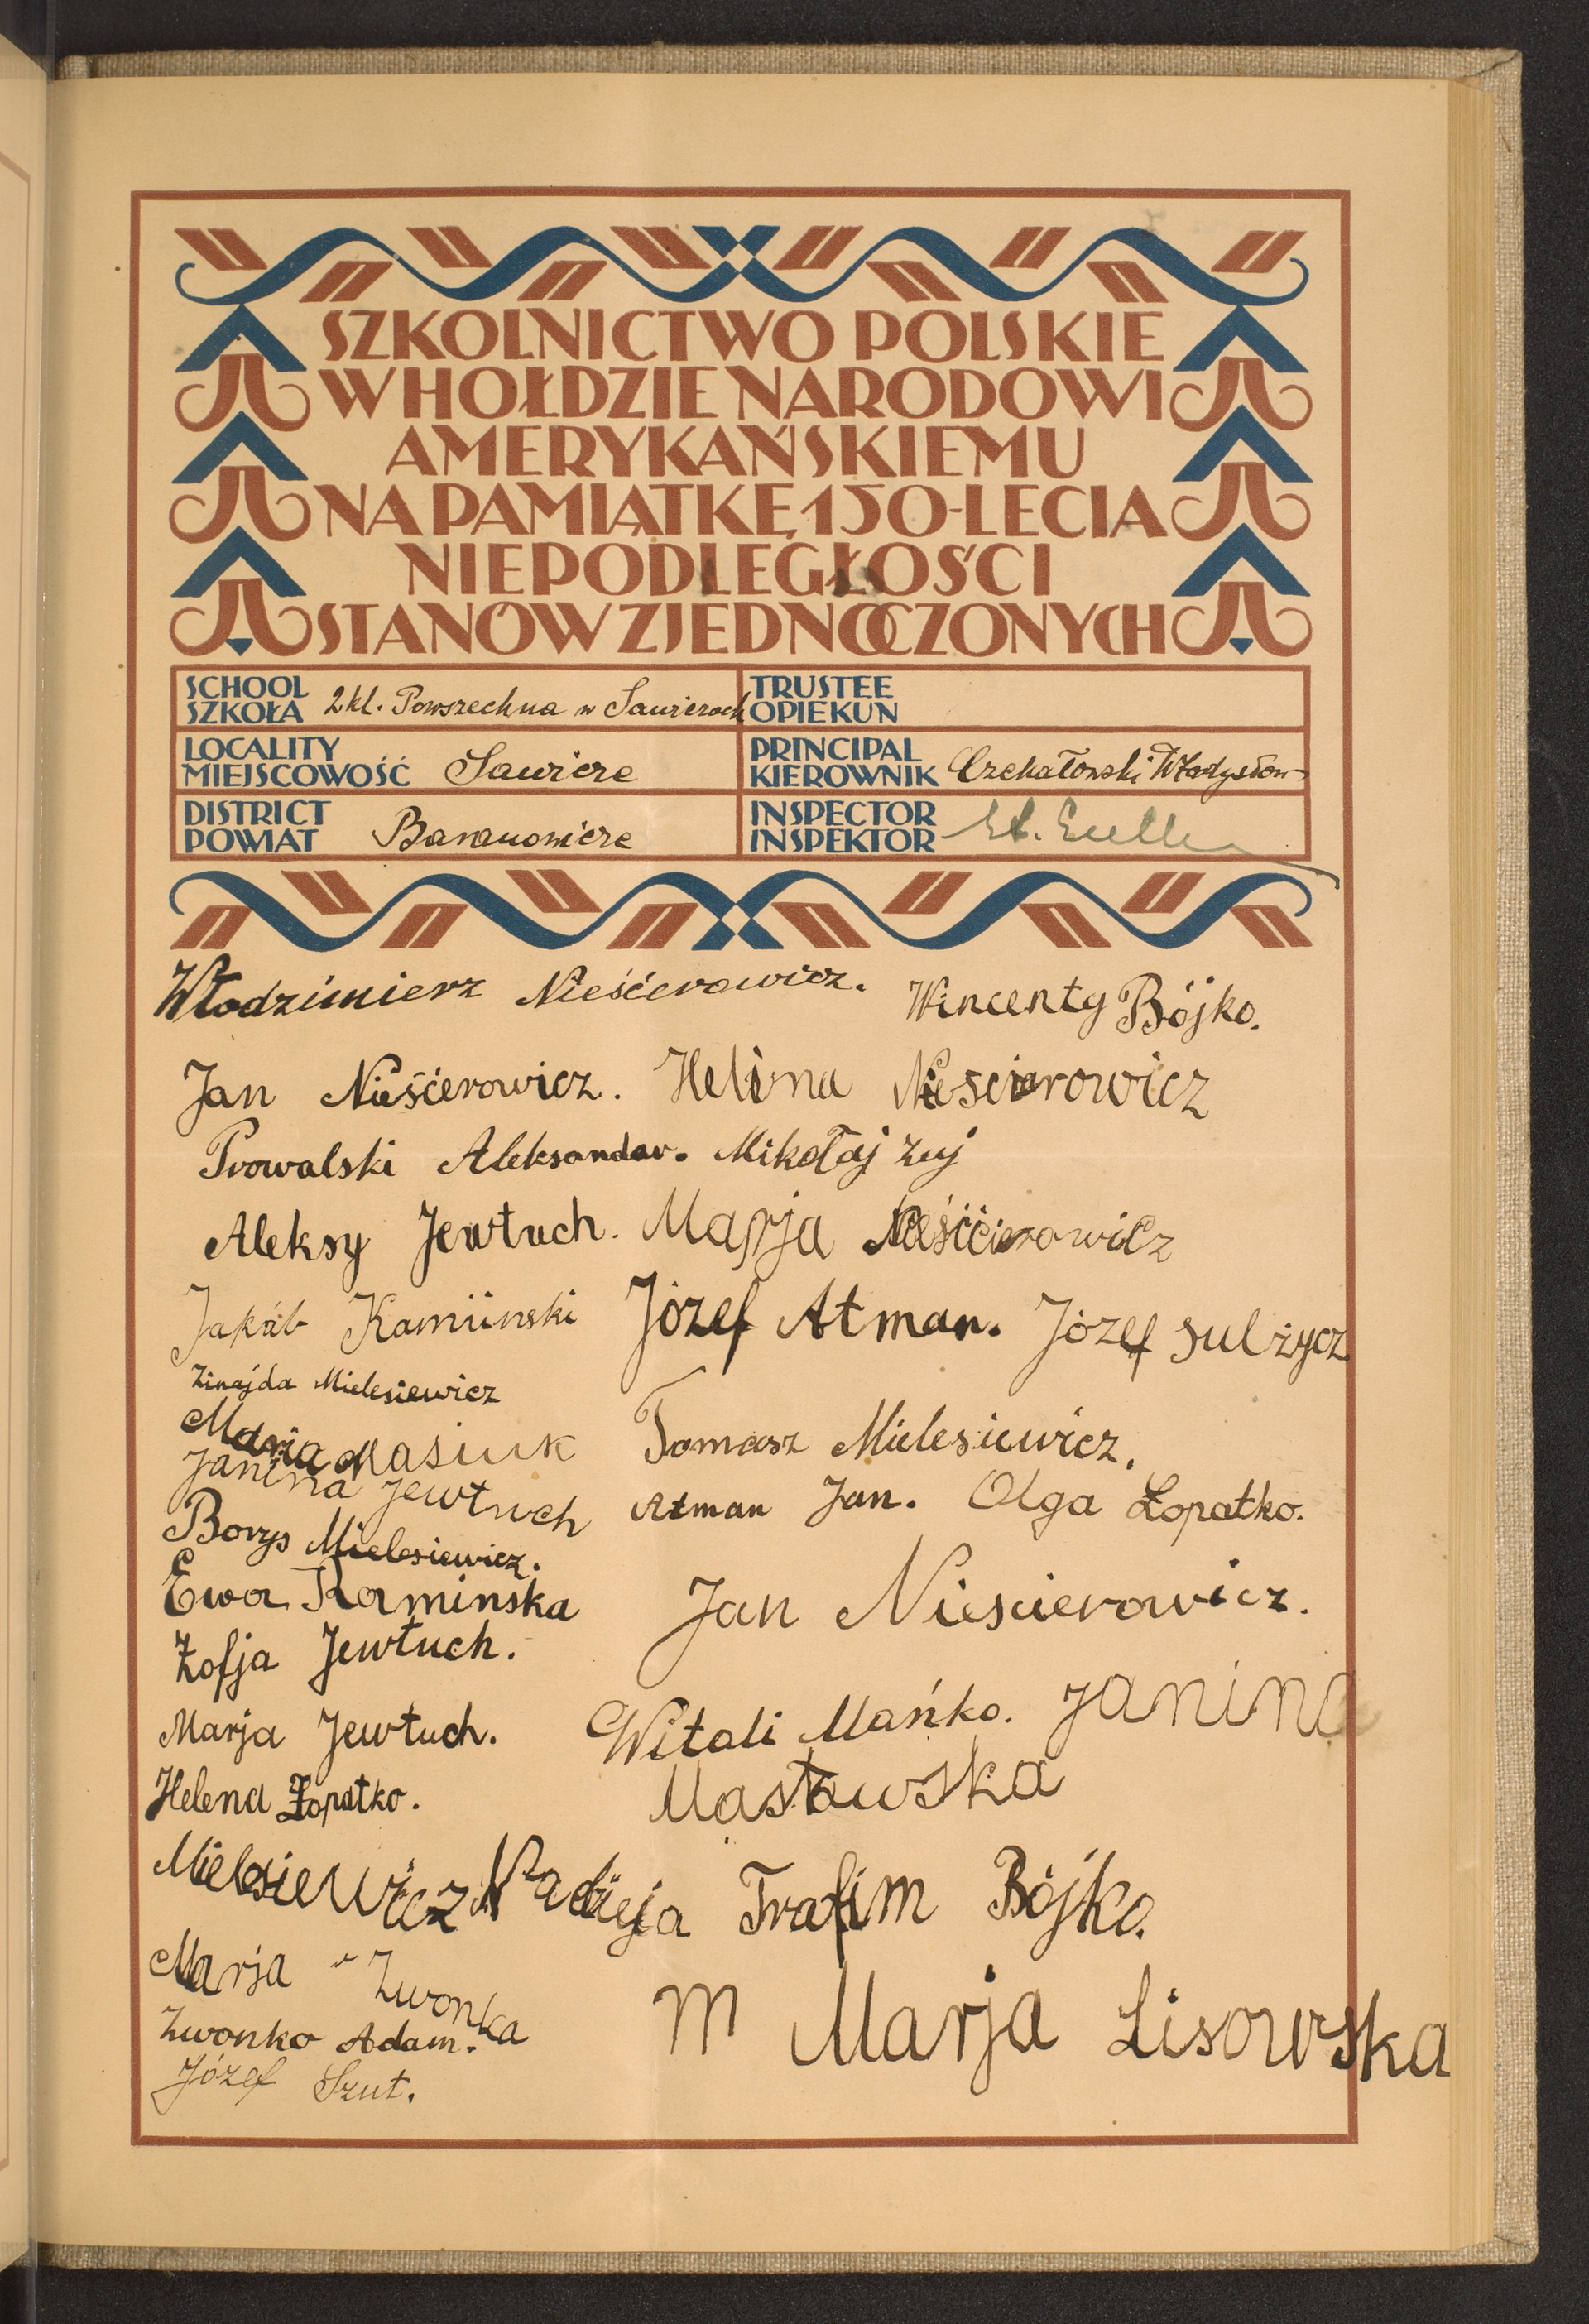 SZKOLNICTWO POLSKIE
W HOŁDZIE NARODOWI
AMERYKAŃSKIEMU
NA PAMIĄTKĘ 150-LECIA
NIEPODLEGŁOŚCI
STANÓW ZJEDNOCZONYCH
SCHOOL
SZKOŁA 2 kl. Powszechna w Sawiczach
TRUSTEE
OPIEKUN
LOCALITY
MIEJSCOWOŚĆ Sawicze
PRINCIPAL
KIEROWNIK Czekałowski Władysław
DISTRICT
POWIAT Baranowicze
INSPECTOR
INSPEKTOR
Włodzimierz Nieśćerowicz. Wincenty Bójko.
Jan Nieśćerowicz. Helina Niescierowicz
Prowalski Aleksandar. Mikołaj Żuj
Aleksy Jewtuch. Marja Nieśćcierowicz
Jakób Kamiinski Józef Atman. Józef Sulżycz
Zinajda Mielesiewicz
Maria Masiuk Tomasz Mielesiewicz.
Janina Jewtuch Atman Jan. Olga Łopatko.
Borys Mielesiewicz.
Ewa Kaminska Jan Niescierowicz.
Zofja Jewtuch.
Marja Jewtuch. Witali Mańko. Janina
Helena Łopatko. Masłowska
Mielesiewicz Nadzieja Trafim Bójko.
Marja Zwonka M Marja Lisowska
Zwonko Adam.
Józef Szut.